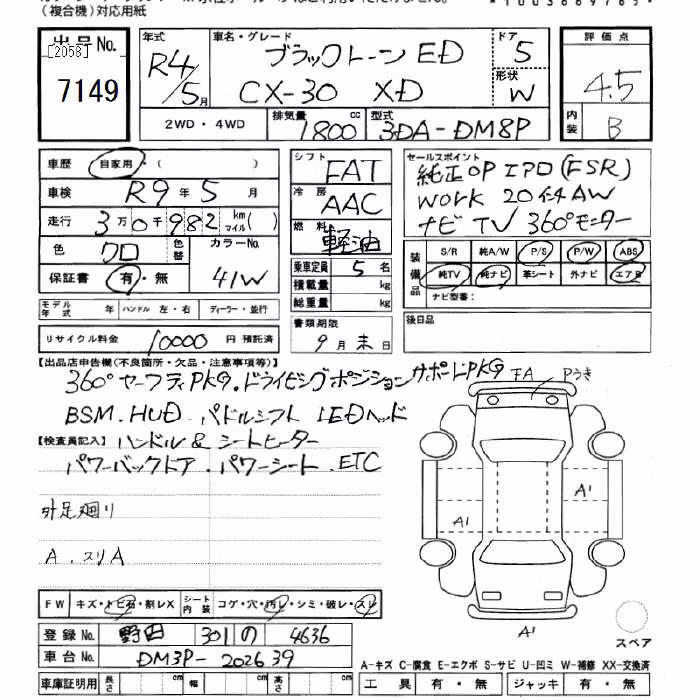 （複合機）対応用紙
出品No.
[2058]
7149
年式 R4/5月
車名・グレード ブラックトーンED
CX-30 XD
ドア 5
形状 W
評価点 4.5
内装 B
2WD・4WD
排気量 1800cc
型式 3DA-DM8P
車歴 自家用・（ ）
車検 R9年5月
走行 3万0千982km マイル( )
色 クロ
色替
カラーNo. 41W
保証書 有・無
シフト FAT
冷房 AAC
燃料 軽油
乗車定員 5名
積載量 kg
総重量 kg
書類期限 9月末日
セールスポイント
純正OP エアロ(FSR)
WORK 20インチAW
ナビ TV 360°モニター
装備品
S/R 純A/W P/S P/W ABS
純TV 純ナビ 革シート 外ナビ エアB
ナビ型番：
後日品
モデル年式 年 ハンドル 左・右 ディーラー・並行
リサイクル料金 10000円 預託済
【出品店申告欄(不良箇所・欠品・注意事項等)】
360°セーフティPKG．ドライビングポジションサポートPKG
BSM．HUD．パドルシフト LEDヘッド
【検査員記入】ハンドル&シートヒーター
パワーバックドア．パワーシート．ETC
外足廻り
A．スリA
下A Pうき
A1
A1
A1
スペア
FW キズ・トビ石・割レX
シート内装 コゲ・穴・汚レ・シミ・破レ・スレ
登録No. 野田 301 の 4636
車台No. DM3P-202639
A-キズ C-腐食 E-エクボ S-サビ U-凹ミ W-補修 XX-交換済
車庫証明用 長さ cm 幅 cm 高さ cm
工具 有・無 ジャッキ 有・無